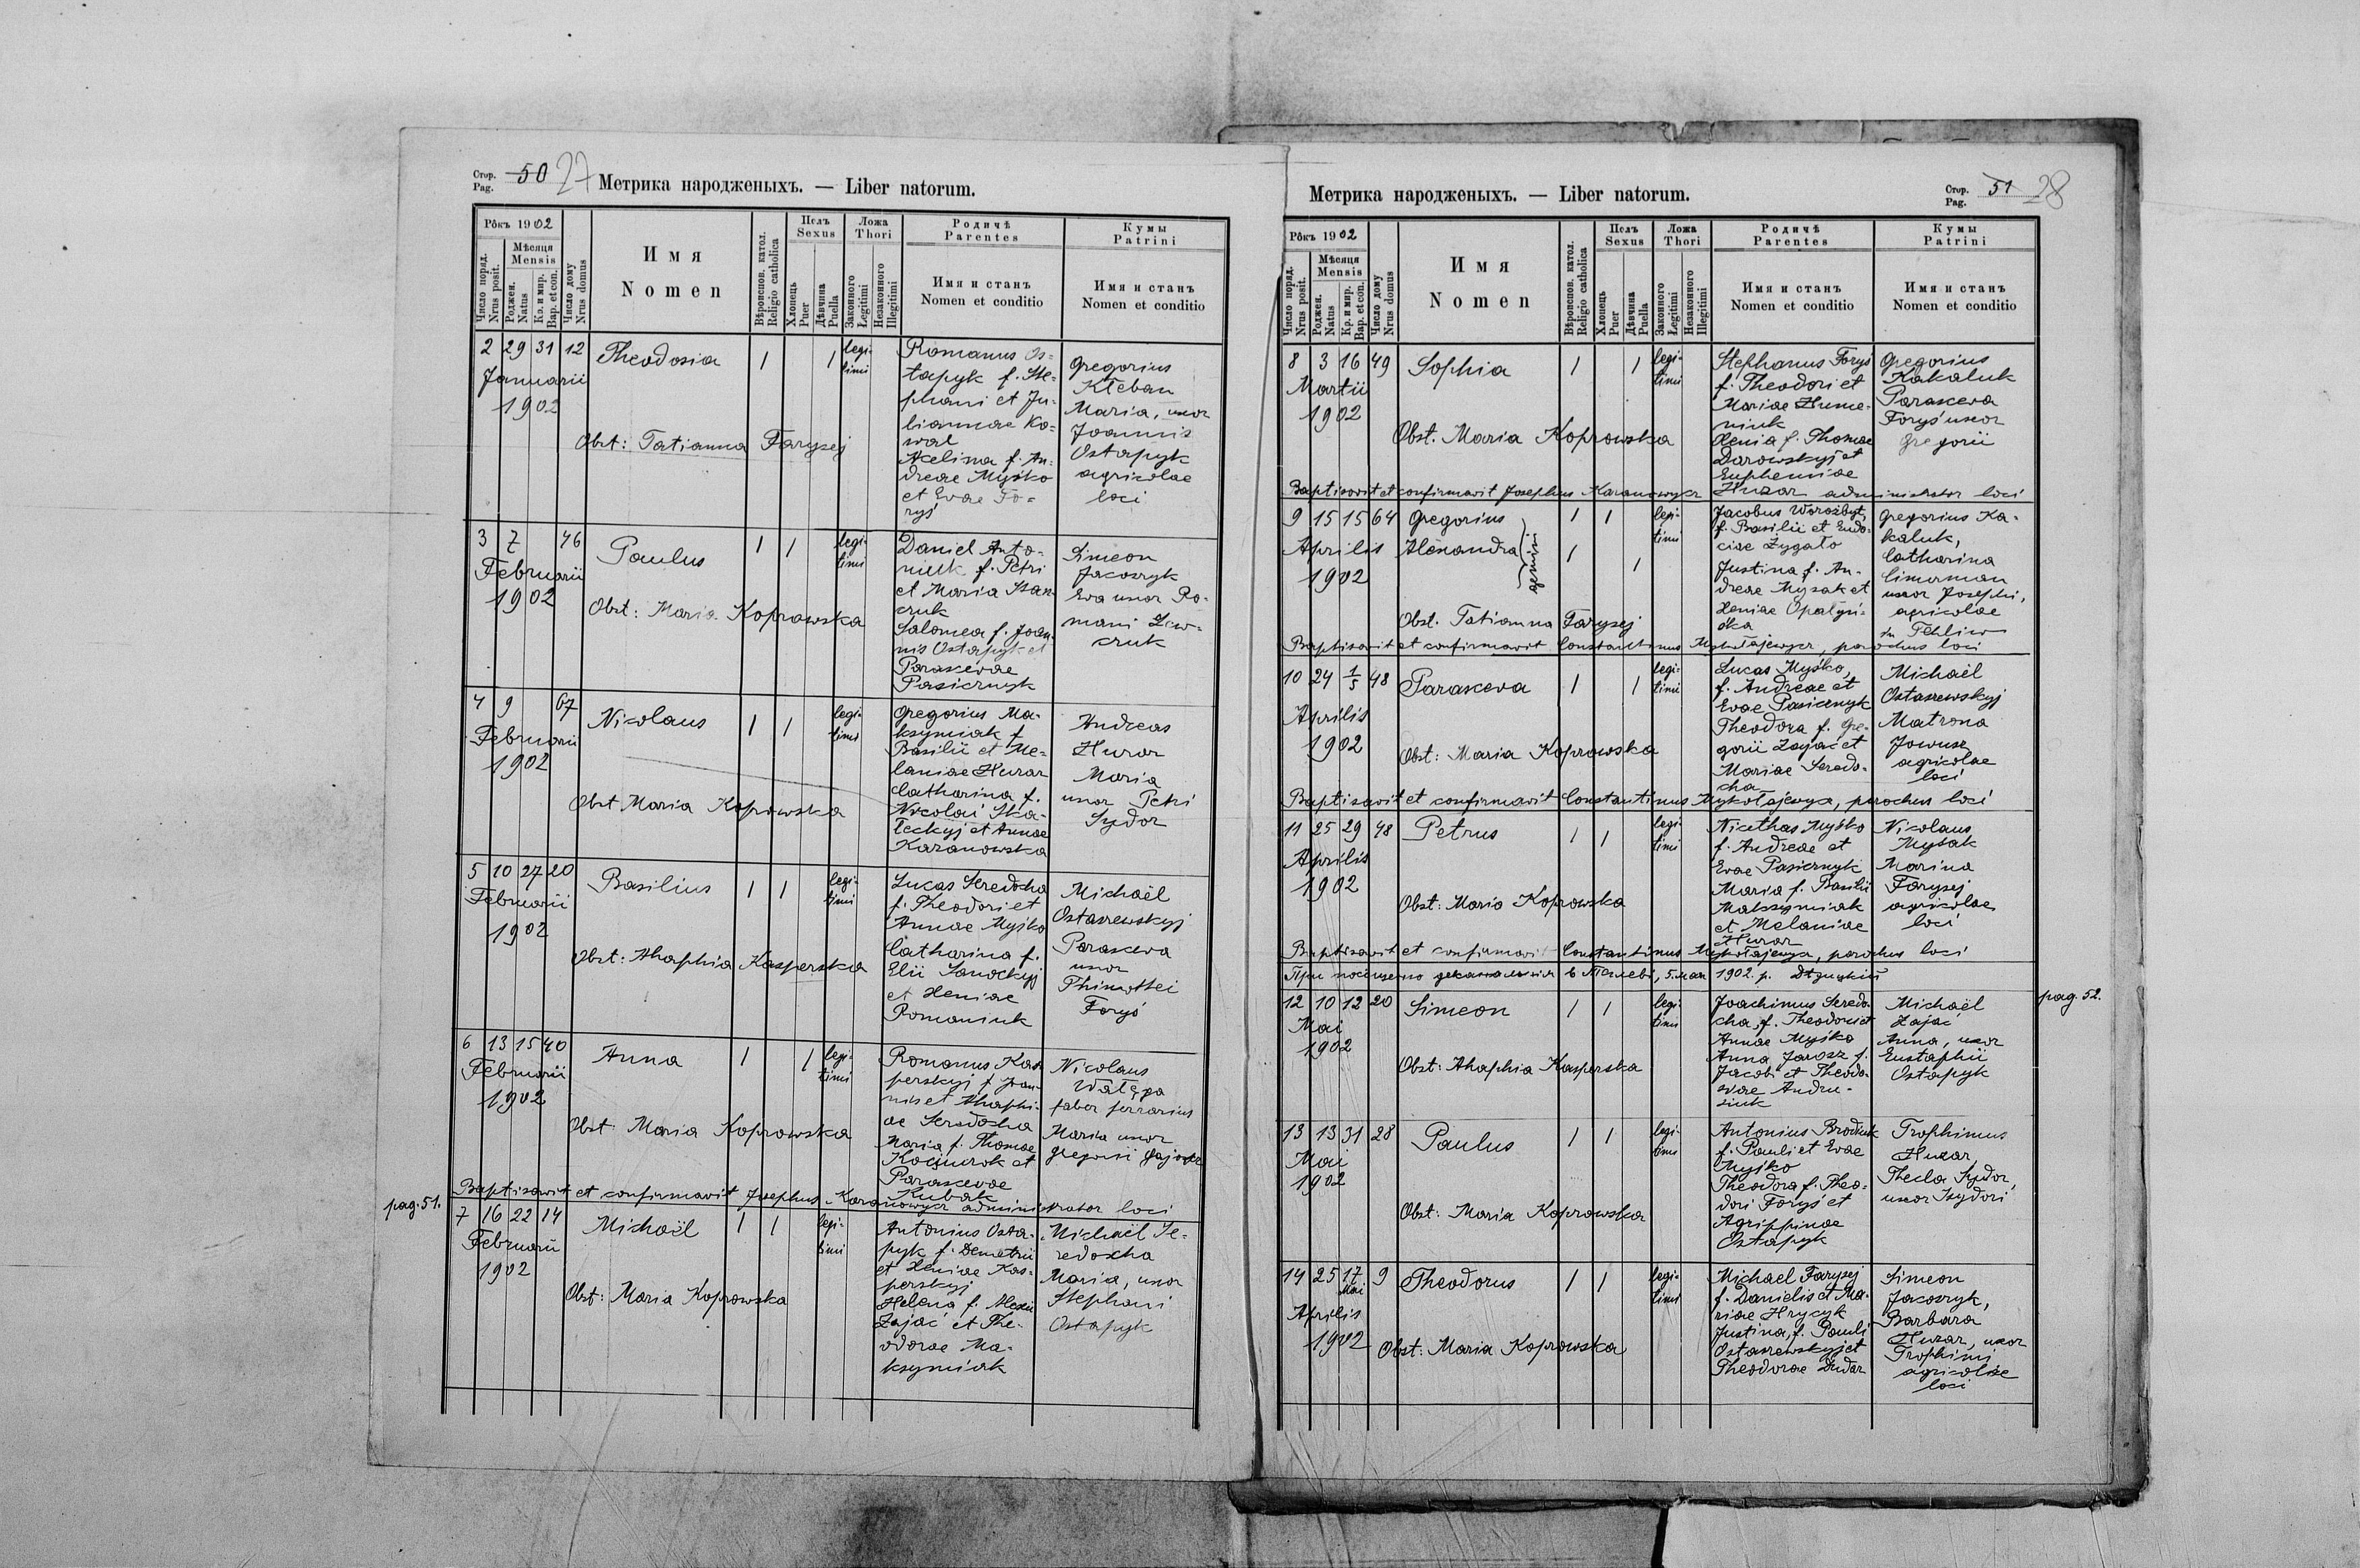 Стор.
Pag.
50 27
Метрика народженыхъ. — Liber natorum.
Рôкъ 1902
Число поряд.
Nrus posit.
Мѣсяця
Mensis
Роджен.
Natus
Кр. и мир.
Bap. et con.
Число дому
Nrus domus
Имя
Nomen
Вѣроиспов. катол.
Religio catholica
Полъ
Sexus
Хлопець
Puer
Дѣвчина
Puella
Ложа
Thori
Законного
Legitimi
Незаконного
Illegitimi
Родичѣ
Parentes
Имя и станъ
Nomen et conditio
Кумы
Patrini
Имя и станъ
Nomen et conditio
2 29 31 12
Januarii
1902
Theodosia
Obst: Tatianna Farysej
1 1
legi-
timi
Romanus Os-
tapyk f. Ste-
phani et Ju-
liannae Ko-
wal
Akelina f. An-
dreae Myśko
et Evae Fo-
ryś
Gregorius
Kłeban
Maria, uxor
Joannis
Ostapyk
agricolae
loci
3 7 46
Februarii
1902
Paulus
Obst: Maria Koprowska
1 1
legi-
timi
Daniel Anto-
niuk f. Petri
et Maria Iwan-
czuk
Salomea f. Joan-
nis Ostapyk et
Parascevae
Pasicznyk
Simeon
Jacoszyk
Eva uxor Ro-
mani Lew-
czuk
4 9 67
Februarii
1902
Nicolaus
Obst Maria Koprowska
1 1
legi-
timi
Gregorius Ma-
ksymiak f
Basilii et Me-
laniae Huzar
Catharina f.
Nicolai Ska-
łeckyj et Annae
Karanowska
Andreas
Huzar
Maria
uxor Petri
Sydor
5 10 27 20
Februarii
1902
Basilius
Obst: Ahaphia Kasperska
1 1
legi-
timi
Lucas Seredocha
f. Theodori et
Annae Myśko
Catharina f.
Elii Sanockyj
et Xeniae
Romaniuk
Michaël
Ostaszewskyj
Parasceva
uxor
Thimothei
Foryś
6 13 15 40
Februarii
1902
Anna
Obst Maria Koprowska
1 1
legi-
timi
Romanus Kas-
perskyj f Joan-
nis et Ahaphi-
ae Seredocha
Maria f. Thomae
Kociurok et
Parascevae
Kubak
Nicolaus
Wałęga
faber ferrarius
Maria uxor
Gregorii
Baptisavit et confirmavit Josephus Karanowycz administrator loci
pag. 51.
7 16 22 14
Februarii
1902
Michaël
Obst: Maria Koprowska
1 1
legi-
timi
Antonius Osta-
pyk f. Demetrii
et Xeniae Kas-
perskyj
Helena f. Alexii
Zając et The-
odorae Ma-
ksymiak
Michaël Se-
redocha
Maria, uxor
Stephani
Ostapyk
Метрика народженыхъ. — Liber natorum.
Стор.
Pag.
51 28
Рôкъ 1902
Число поряд.
Nrus posit.
Мѣсяця
Mensis
Роджен.
Natus
Кр. и мир.
Bap. et con.
Число дому
Nrus domus
Имя
Nomen
Вѣроиспов. катол.
Religio catholica
Полъ
Sexus
Хлопець
Puer
Дѣвчина
Puella
Ложа
Thori
Законного
Legitimi
Незаконного
Illegitimi
Родичѣ
Parentes
Имя и станъ
Nomen et conditio
Кумы
Patrini
Имя и станъ
Nomen et conditio
8 3 16 49
Martii
1902
Sophia
Obst. Maria Koprowska
1 1
legi-
timi
Stephanus Foryś
f. Theodori et
Mariae Hume-
niuk
Xenia f. Thomae
Darowskyj et
Euphemiae
Huzar
Gregorius
Kakaluk
Parasceva
Foryś uxor
Gregorii
Baptisavit et confirmavit Josephus Karanowycz administrator loci
9 15 15 64
Aprilis
1902
Gregorius
Alexandra
gemini
Obst. Tatianna Farysej
1 1
1 1
legi-
timi
Jacobus Worożbyt,
f. Basilii et Eudo-
ciae Żygało
Justina f. An-
dreae Mysak et
Xeniae Opałyń-
ska
Gregorius Ka-
kaluk,
Catharina
Cimerman
uxor Josephi,
agricolae
in Tehliw
Baptisavit et confirmavit Constantinus Mykołajewycz, parochus loci
10 24 1/5 48
Aprilis
1902
Parasceva
Obst: Maria Koprowska
1 1
legi-
timi
Lucas Myśko,
f. Andreae et
Evae Pasicznyk
Theodora f. Gre-
gorii Zając et
Mariae Seredo-
cha
Michaël
Ostaszewskyj
Matrona
Jowusz
agricolae
loci
Baptisavit et confirmavit Constantinus Mykołajewycz, parochus loci
11 25 29 48
Aprilis
1902
Petrus
Obst: Maria Koprowska
1 1
legi-
timi
Nicethas Myśko
f. Andreae et
Evae Pasicznyk
Maria f. Basilii
Maksymiak
et Melaniae
Huzar
Nicolaus
Mysak
Marina
Farysej
agricolae
loci
Baptisavit et confirmavit Constantinus Mykołajewycz, parochus loci
При посѣщеню деканальнім в Теглеві, 5. мая 1902. р.
12 10 12 20
Mai
1902
Simeon
Obst: Ahaphia Kasperska
1 1
legi-
timi
Joachimus Seredo-
cha, f. Theodori et
Annae Myśko
Anna Jarosz f.
Jacobi et Theodo-
siae Andru-
siuk
Michaël
Zając
Anna, uxor
Eustaphii
Ostapyk
pag. 52.
13 13 31 28
Mai
1902
Paulus
Obst: Maria Koprowska
1 1
legi-
timi
Antonius Brodiuk
f. Pauli et Evae
Myśko
Theodora f. Theo-
dori Foryś et
Agrippinae
Ostapyk
Trophimus
Huzar,
Thecla Sydor,
uxor Isydori
14 25 17 9
Mai
Aprilis
1902
Theodorus
Obst: Maria Koprowska
1 1
legi-
timi
Michael Farysej
f. Danielis et Ma-
riae Hrycyk
Justina, f. Pauli
Ostaszewskyj et
Theodorae Dudar
Simeon
Jacoszyk,
Barbara
Huzar, uxor
Trophimi
agricolae
loci